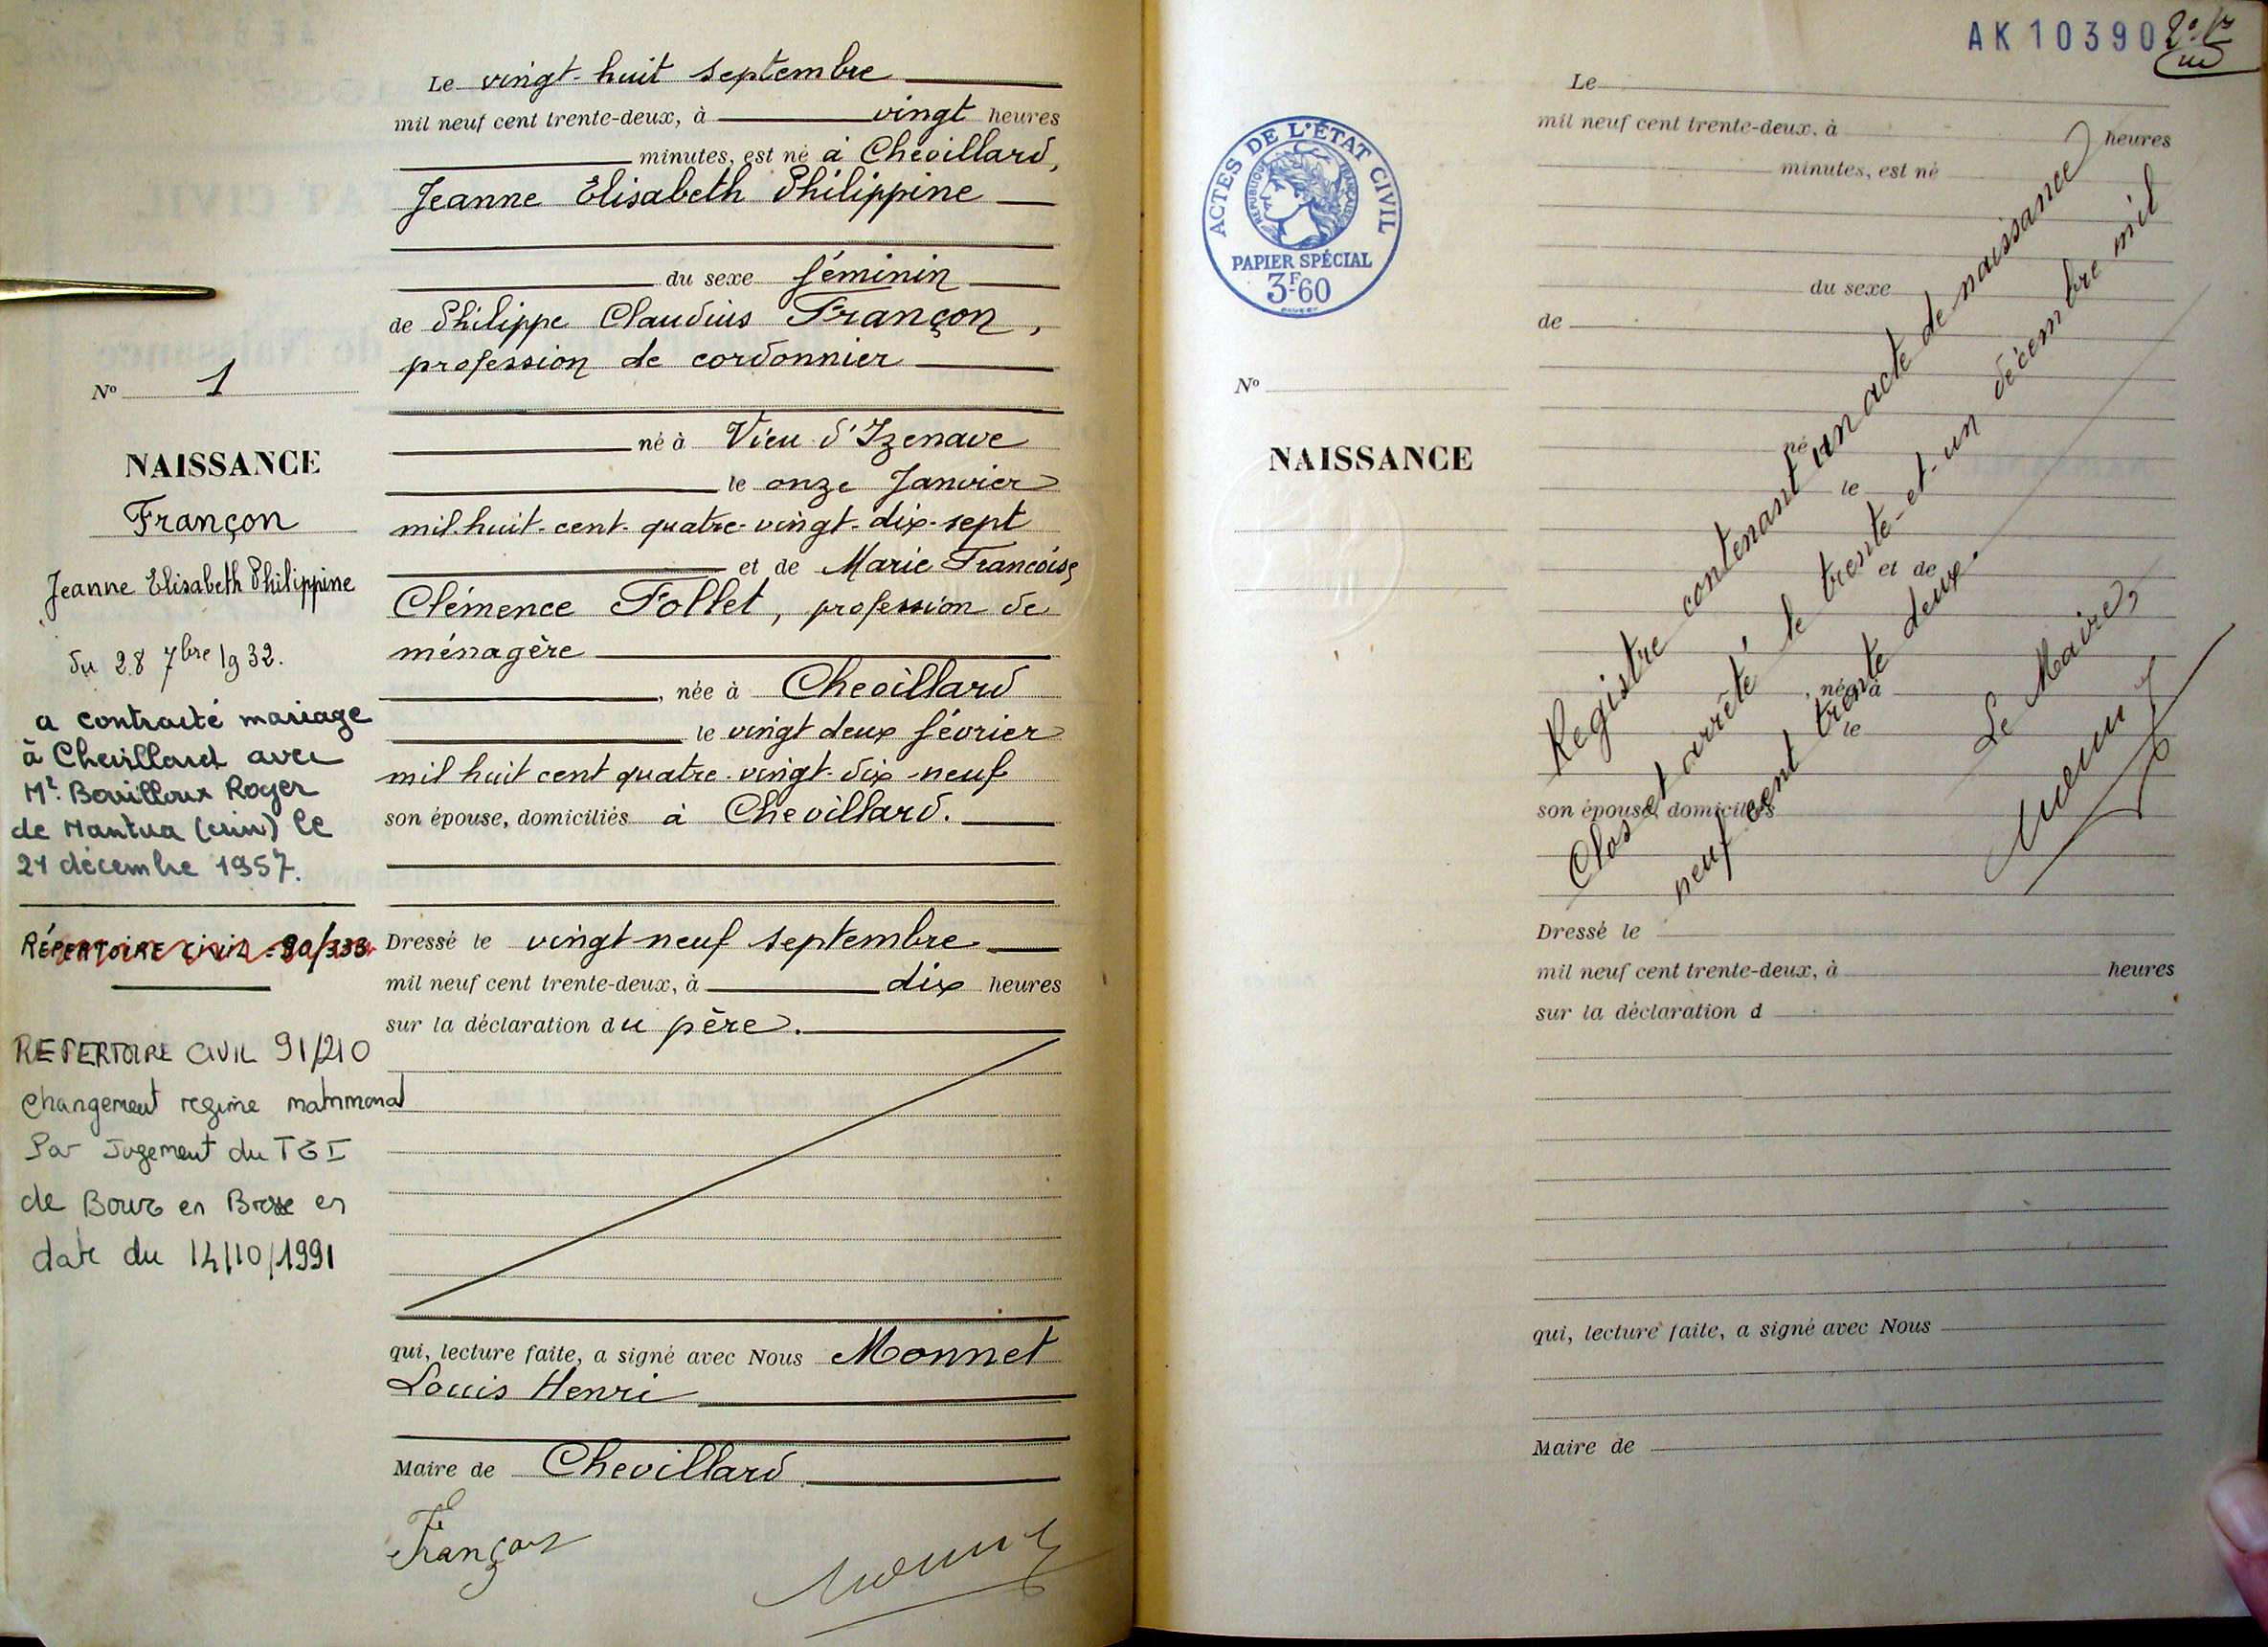 Le vingt-huit septembre
mil neuf cent trente-deux, à vingt heures
minutes, est né à Chevillard,
Jeanne Elisabeth Philippine
du sexe féminin
de Philippe Claudius Françon,
profession de cordonnier
né à Vieu d'Izenave
le onze Janvier
mil huit-cent-quatre-vingt-dix-sept
et de Marie Francoise
Clémence Follet, profession de
ménagère
, née à Chevillard
le vingt deux février
mil huit cent quatre-vingt-dix-neuf
son épouse, domiciliés à Chevillard.
Dressé le vingt neuf septembre
mil neuf cent trente-deux, à dix heures
sur la déclaration du père.
qui, lecture faite, a signé avec Nous Monnet
Louis Henri
Maire de Chevillard
Françon
No 1
NAISSANCE
Françon
Jeanne Elisabeth Philippine
du 28 7bre 1932.
a contracté mariage
à Chevillard avec
Mr. Bouilloux Roger
de Nantua (Ain) le
21 décembre 1957.
RÉPERTOIRE CIVIL - 90/333
REPERTOIRE CIVIL 91/210
changement regime matrimonial
Par Jugement du TGI
de Bourg en Bresse en
date du 14/10/1991
AK 10390
ACTES DE L'ÉTAT CIVIL
RÉPUBLIQUE FRANÇAISE
PAPIER SPÉCIAL
3F.60
No
NAISSANCE
Le
mil neuf cent trente-deux, à heures
minutes, est né
du sexe
de
né
le
et de
, née à
le
son épouse, domiciliés
Dressé le
mil neuf cent trente-deux, à heures
sur la déclaration d
qui, lecture faite, a signé avec Nous
Maire de
Registre contenant un acte de naissance
Clos et arrêté le trente-et-un décembre mil
neuf cent trente deux.
Le Maire,